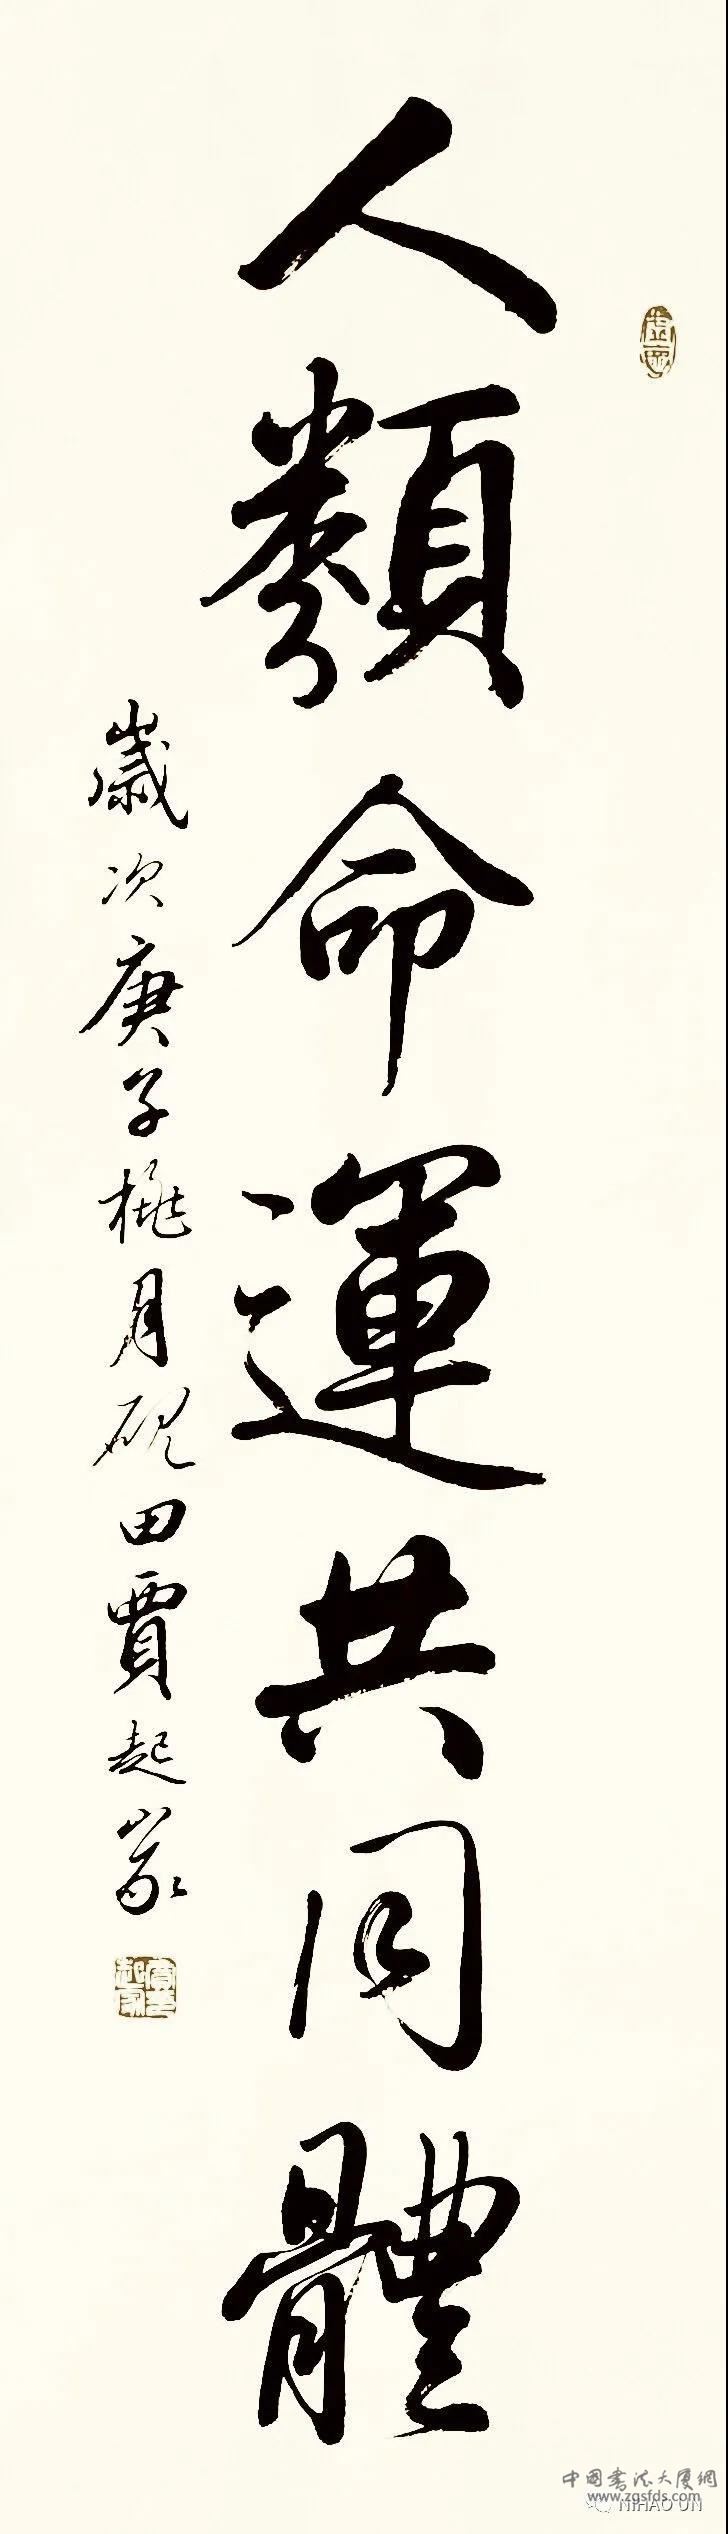 人類命運共同體
歲次庚子桃月硯田賈起家
中國書法大厦網
www.zgsfds.com
NIHAO UN